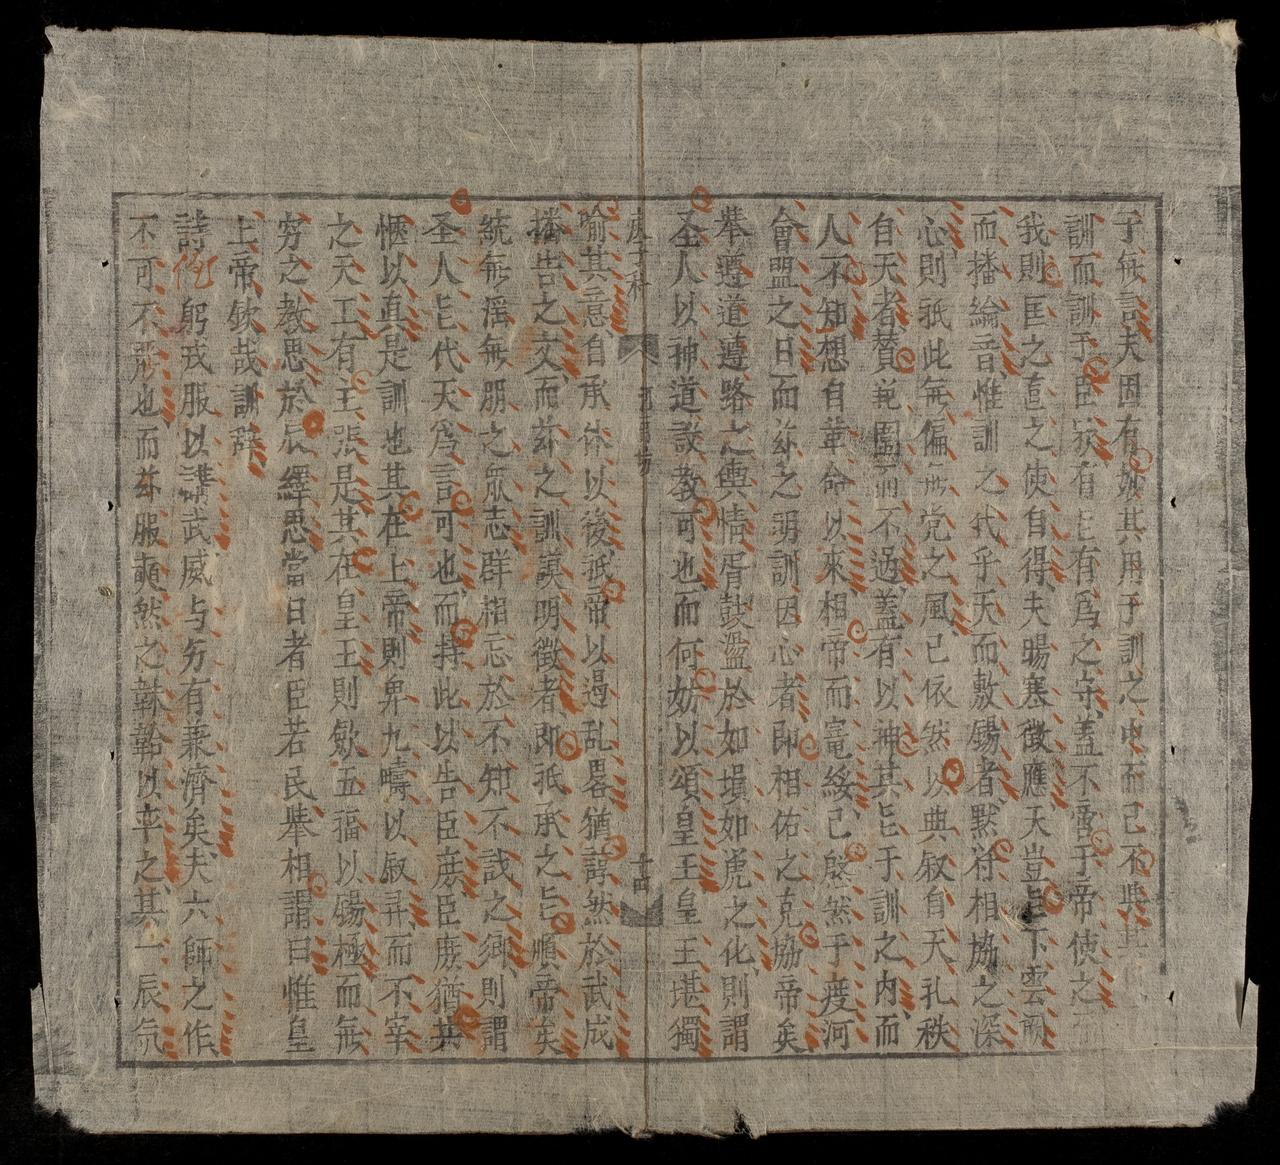 于無言夫固有妙其用于訓之中而已不然其
訓而訓于臣家有臣有為之守蓋不啻于帝使之
我則匡之直之使自得夫暘寒徵應天豈旨下雲
而播綸音惟訓之代乎天而敷錫者默符相協之深
心則祇此無偏無党之風已依然以典叙自天礼秩
自天者賛範圍而不過蓋有以神其旨于訓之內而
人不知想自革命以來相帝而寵綏已慇然乎渡河
會盟之日而茲之明訓因心者即相佑之克協帝矣
舉遵道遵路之輿情胥鼓盪於如塤如篪之化則謂
圣人以神道設教可也而何妨以頌皇王皇王堪獨
庚子科 十四
喻其意自承休以後祇帝以遏乱畧猶諄然於武成
播告之文而茲之訓謨明徵者即祇承之旨順帝矣
統無淫無朋之众志群相忘於不知不識之鄉則謂
圣人旨代天為言可也而持此以告臣庶臣庶猶共
愜以真是訓也其在上帝則畀九疇以叙昇而不宰
之天工有主張是其在皇王則斂五福以錫極而無
穷之教思於尿繹思當日者臣若民舉相謂曰惟皇
上帝欽哉訓辭
詩 躬戎服以講武威与穷有兼濟矣夫六師之作
不可不 也而茲服奭然之韎韐以率之其一辰氛